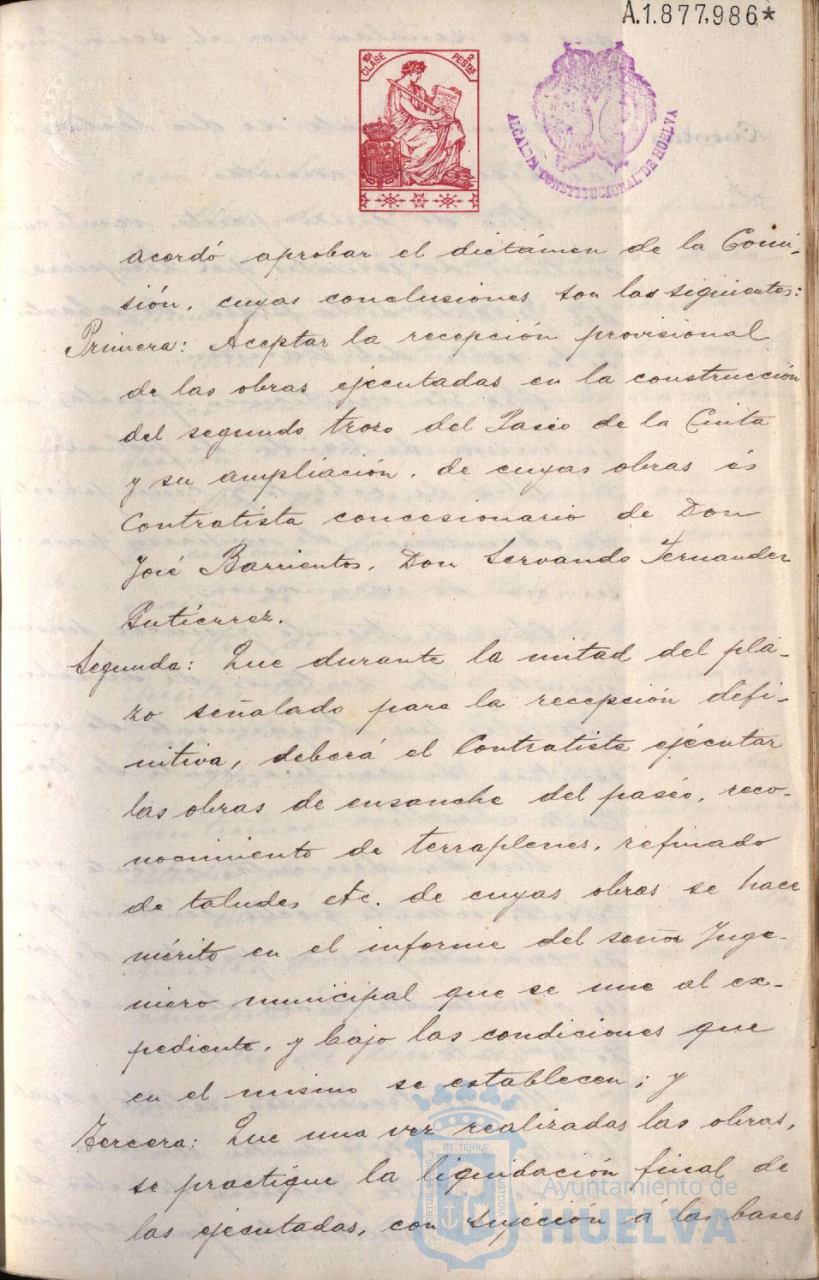 A.1.877.986*
10ª CLASE 2 PESTAS
ALCALDIA CONSTITUCIONAL DE HUELVA
acordó aprobar el dictámen de la Comi-
sión, cuyas conclusiones son las siguientes:
Primera: Aceptar la recepción provisional
de las obras ejecutadas en la construcción
del segundo trozo del Paseo de la Cinta
y su ampliación, de cuyas obras és
Contratista concesionario de Don
José Barrientos, Don Servando Fernandez
Gutiérrez.
Segunda: Que durante la mitad del pla-
zo señalado para la recepción defi-
nitiva, deberá el Contratista ejecutar
las obras de ensanche del paseo, reco-
nocimiento de terraplenes, refinado
de taludes etc. de cuyas obras se hace
mérito en el informe del señor Inge-
niero municipal que se une al ex-
pediente, y bajo las condiciones que
en el mismo se establecen; y
Tercera: Que una vez realizadas las obras,
se practique la liquidación final de
las ejecutadas, con sujeción á las bases
Ayuntamiento de
HUELVA